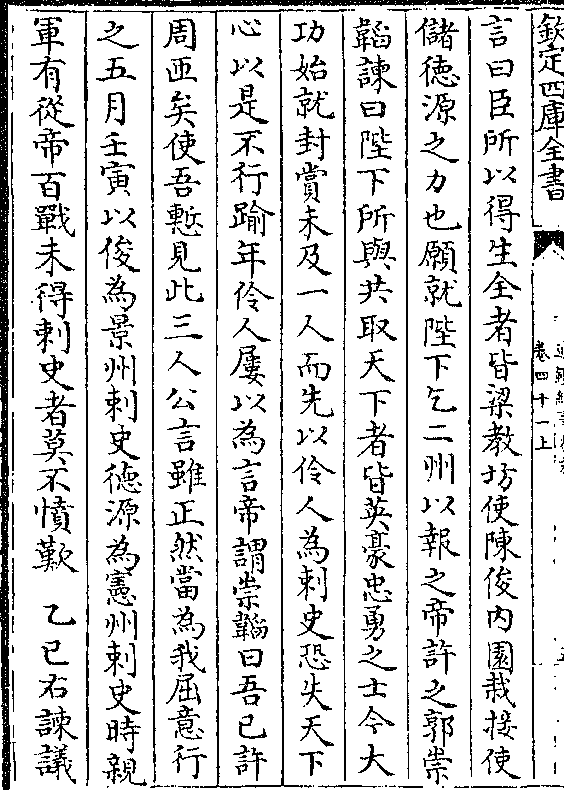 欽定四庫全書
卷四十一上
言曰臣所以得生全者皆梁教坊使陳俊内園栽接使
儲德源之力也願就陛下乞二州以報之帝許之郭崇
韜諫曰陛下所與共取天下者皆英豪忠勇之士今大
功始就封賞未及一人而先以伶人為刺史恐失天下
心以是不行踰年伶人屢以為言帝謂崇韜曰吾已許
周匝矣使吾慙見此三人公言雖正然當為我屈意行
之五月壬寅以俊為景州刺史德源為憲州刺史時親
軍有從帝百戰未得刺史者莫不憤歎　乙巳右諫議